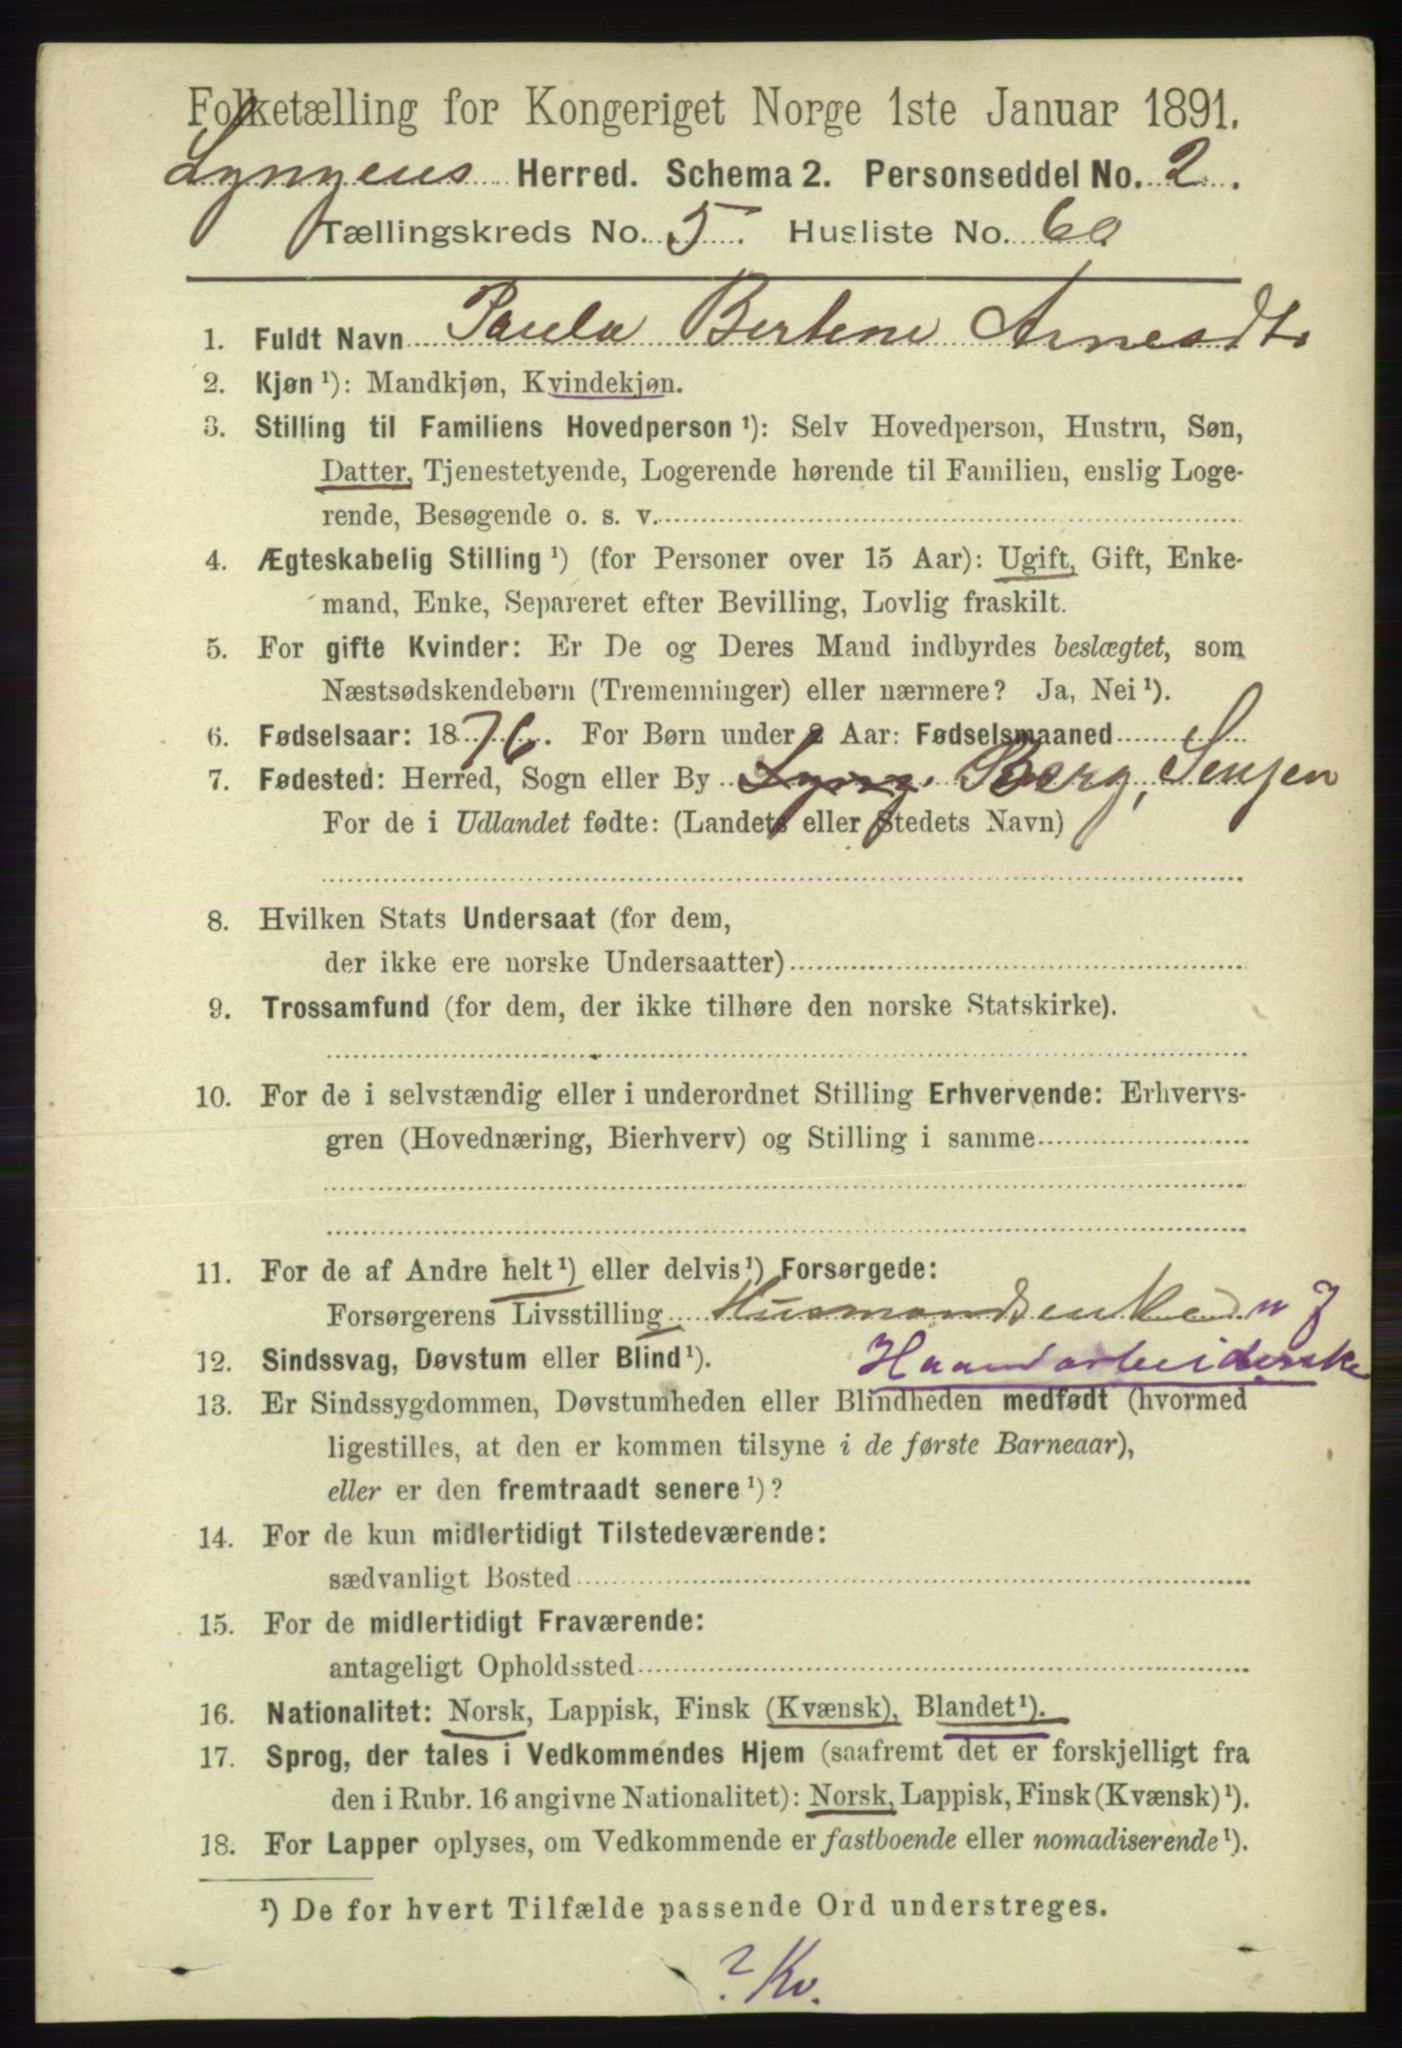 Folketælling for Kongeriget Norge 1ste Januar 1891.
Lyngens Herred. Schema 2. Personseddel No. 2.
Tællingskreds No. 5. Husliste No. 60
1. Fuldt Navn Paula Bertine Arnesdtr
2. Kjøn ¹): Mandkjøn, Kvindekjøn.
3. Stilling til Familiens Hovedperson ¹): Selv Hovedperson, Hustru, Søn,
Datter, Tjenestetyende, Logerende hørende til Familien, enslig Loge-
rende, Besøgende o. s. v.
4. Ægteskabelig Stilling ¹) (for Personer over 15 Aar): Ugift, Gift, Enke-
mand, Enke, Separeret efter Bevilling, Lovlig fraskilt.
5. For gifte Kvinder: Er De og Deres Mand indbyrdes beslægtet, som
Næstsødskendebørn (Tremenninger) eller nærmere? Ja, Nei ¹).
6. Fødselsaar: 1876. For Børn under 2 Aar: Fødselsmaaned
7. Fødested: Herred, Sogn eller By Lyng. Berg, Senjen
For de i Udlandet fødte: (Landets eller Stedets Navn)
8. Hvilken Stats Undersaat (for dem,
der ikke ere norske Undersaatter)
9. Trossamfund (for dem, der ikke tilhøre den norske Statskirke).
10. For de i selvstændig eller i underordnet Stilling Erhvervende: Erhvervs-
gren (Hovednæring, Bierhverv) og Stilling i samme
11. For de af Andre helt ¹) eller delvis ¹) Forsørgede:
Forsørgerens Livsstilling Husmandsenke
12. Sindssvag, Døvstum eller Blind ¹). Haandarbeiderske
13. Er Sindssygdommen, Døvstumheden eller Blindheden medfødt (hvormed
ligestilles, at den er kommen tilsyne i de første Barneaar),
eller er den fremtraadt senere ¹)?
14. For de kun midlertidigt Tilstedeværende:
sædvanligt Bosted
15. For de midlertidigt Fraværende:
antageligt Opholdssted
16. Nationalitet: Norsk, Lappisk, Finsk (Kvænsk), Blandet ¹).
17. Sprog, der tales i Vedkommendes Hjem (saafremt det er forskjelligt fra
den i Rubr. 16 angivne Nationalitet): Norsk, Lappisk, Finsk (Kvænsk) ¹).
18. For Lapper oplyses, om Vedkommende er fastboende eller nomadiserende ¹).
¹) De for hvert Tilfælde passende Ord understreges.
? Kv.